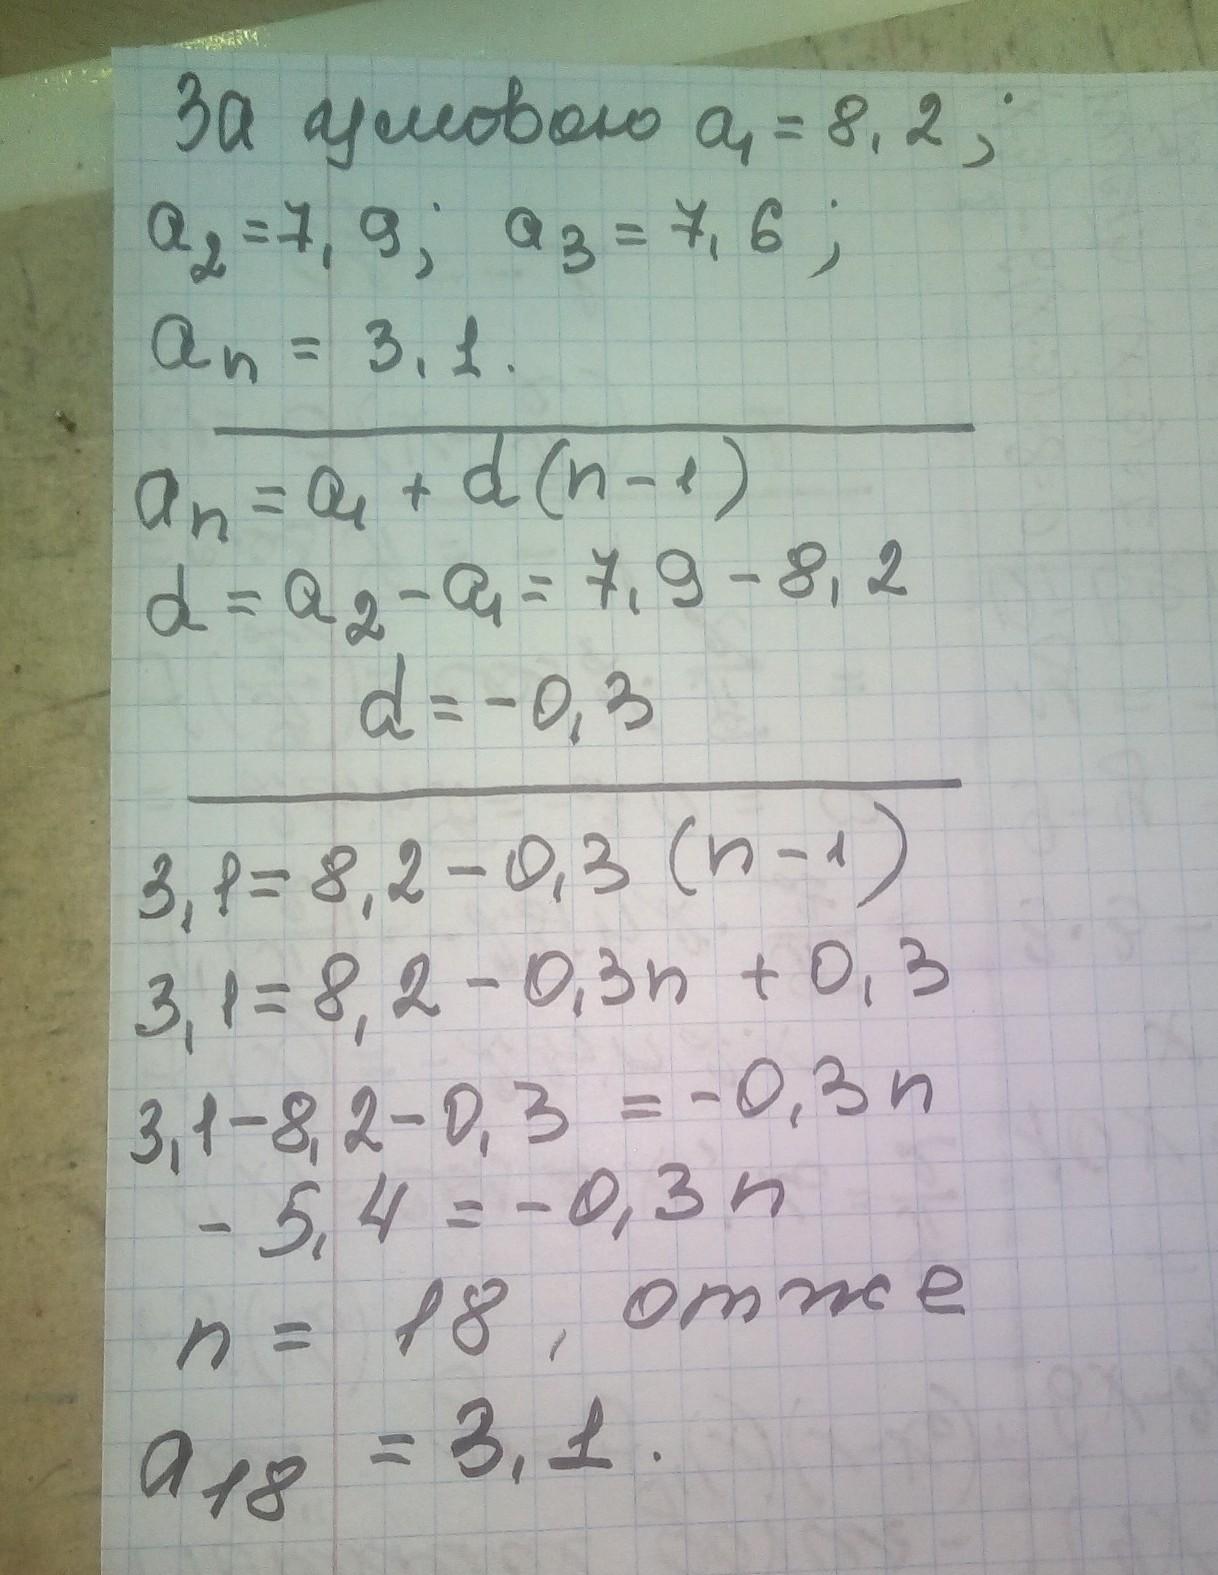 За умовою a₁ = 8,2;
a₂ = 7,9; a₃ = 7,6;
aₙ = 3,1.
aₙ = a₁ + d(n-1)
d = a₂ - a₁ = 7,9 - 8,2
d = -0,3
3,1 = 8,2 - 0,3 (n-1)
3,1 = 8,2 - 0,3n + 0,3
3,1 - 8,2 - 0,3 = -0,3n
- 5,4 = -0,3n
n = 18, отже
a₁₈ = 3,1.